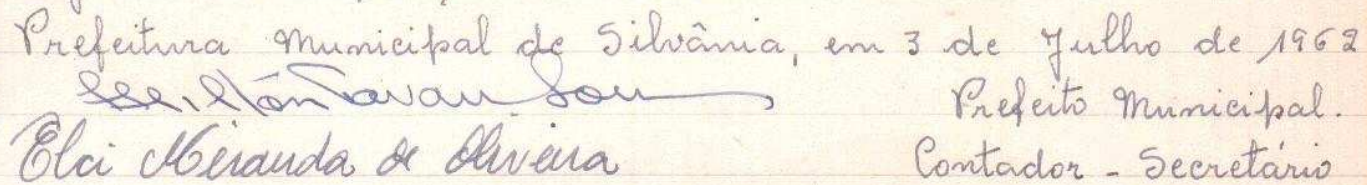 Prefeitura Municipal de Silvânia, em 3 de Julho de 1962
Prefeito Municipal.
Elci Miranda de Oliveira Contador - Secretário